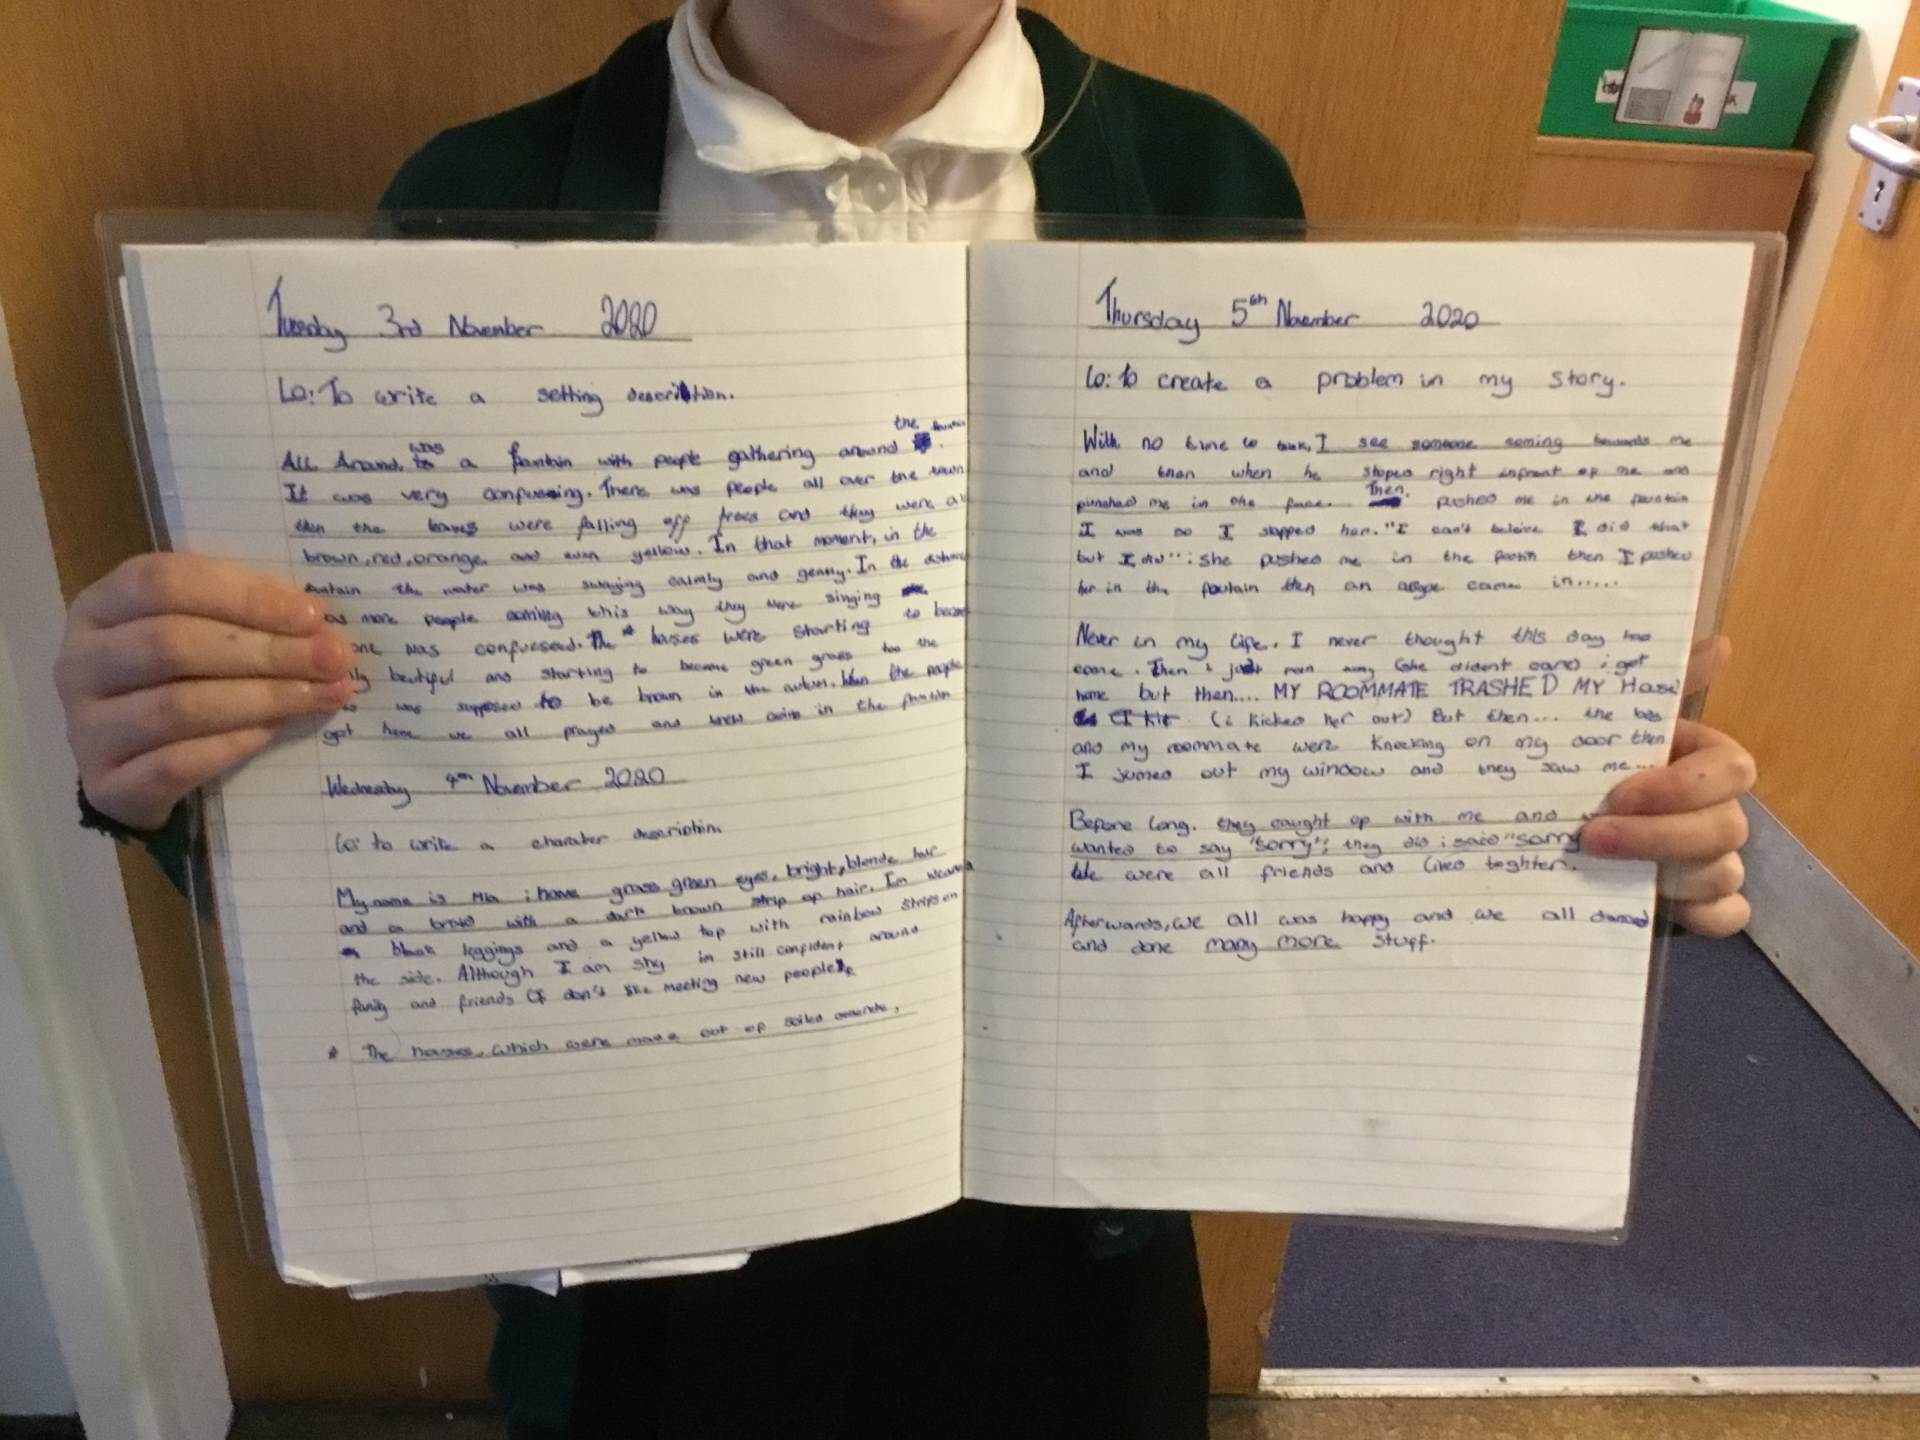 Tuesday 3rd November 2020
Lo: To write a setting description.
the fountain
All Around, was a fountain with people gathering around .
It was very confuesing. There was people all over the town
then the leaves were falling off trees and they were all
brown, red, orange, and even yellow. In that moment, in the
the water was swaying calmly and gently. In the distance
more people coming this way they were singing
was confuesed. The * houses were starting to become
beutiful and starting to become green grass too the
was supposed to be brown in the autum. When the people
got here we all prayed and threw coins in the fountain
Wednesday 4th November 2020
Lo: to write a charater description.
My name is Mia i have grass green eyes, bright, blonde hair
and a braid with a dark brown strip of hair. Im wearing
black leggings and a yellow top with rainbow strips on
the side. Although I am shy im still confident around
family and friends (I don't like meeting new people).
* The houses, which were made out of soiled concrete,
Thursday 5th November 2020
Lo: to create a problem in my story.
With no time to I see someone coming towards me
and then when he stoped right infront of me and
punched me in the face. Then, pushed me in the fountain
I was so I slapped her. "I can't beleive I did that
but I did": she pushed me in the then I pushed
her in the fountain then an came in.....
Never in my life, I never thought this day had
come. Then i just ran away (she dident care) i got
home but then.... MY ROOMMATE TRASHED MY House
(i kicked her out) But then... the
and my roommate were knocking on my door then
I jumed out my window and they saw me...
Before long, they caught up with me and
wanted to say "sorry"; they did i said "sorry
We were all friends and lived teghter.
Afterwards, we all was happy and we all danced
and done many more stuff.